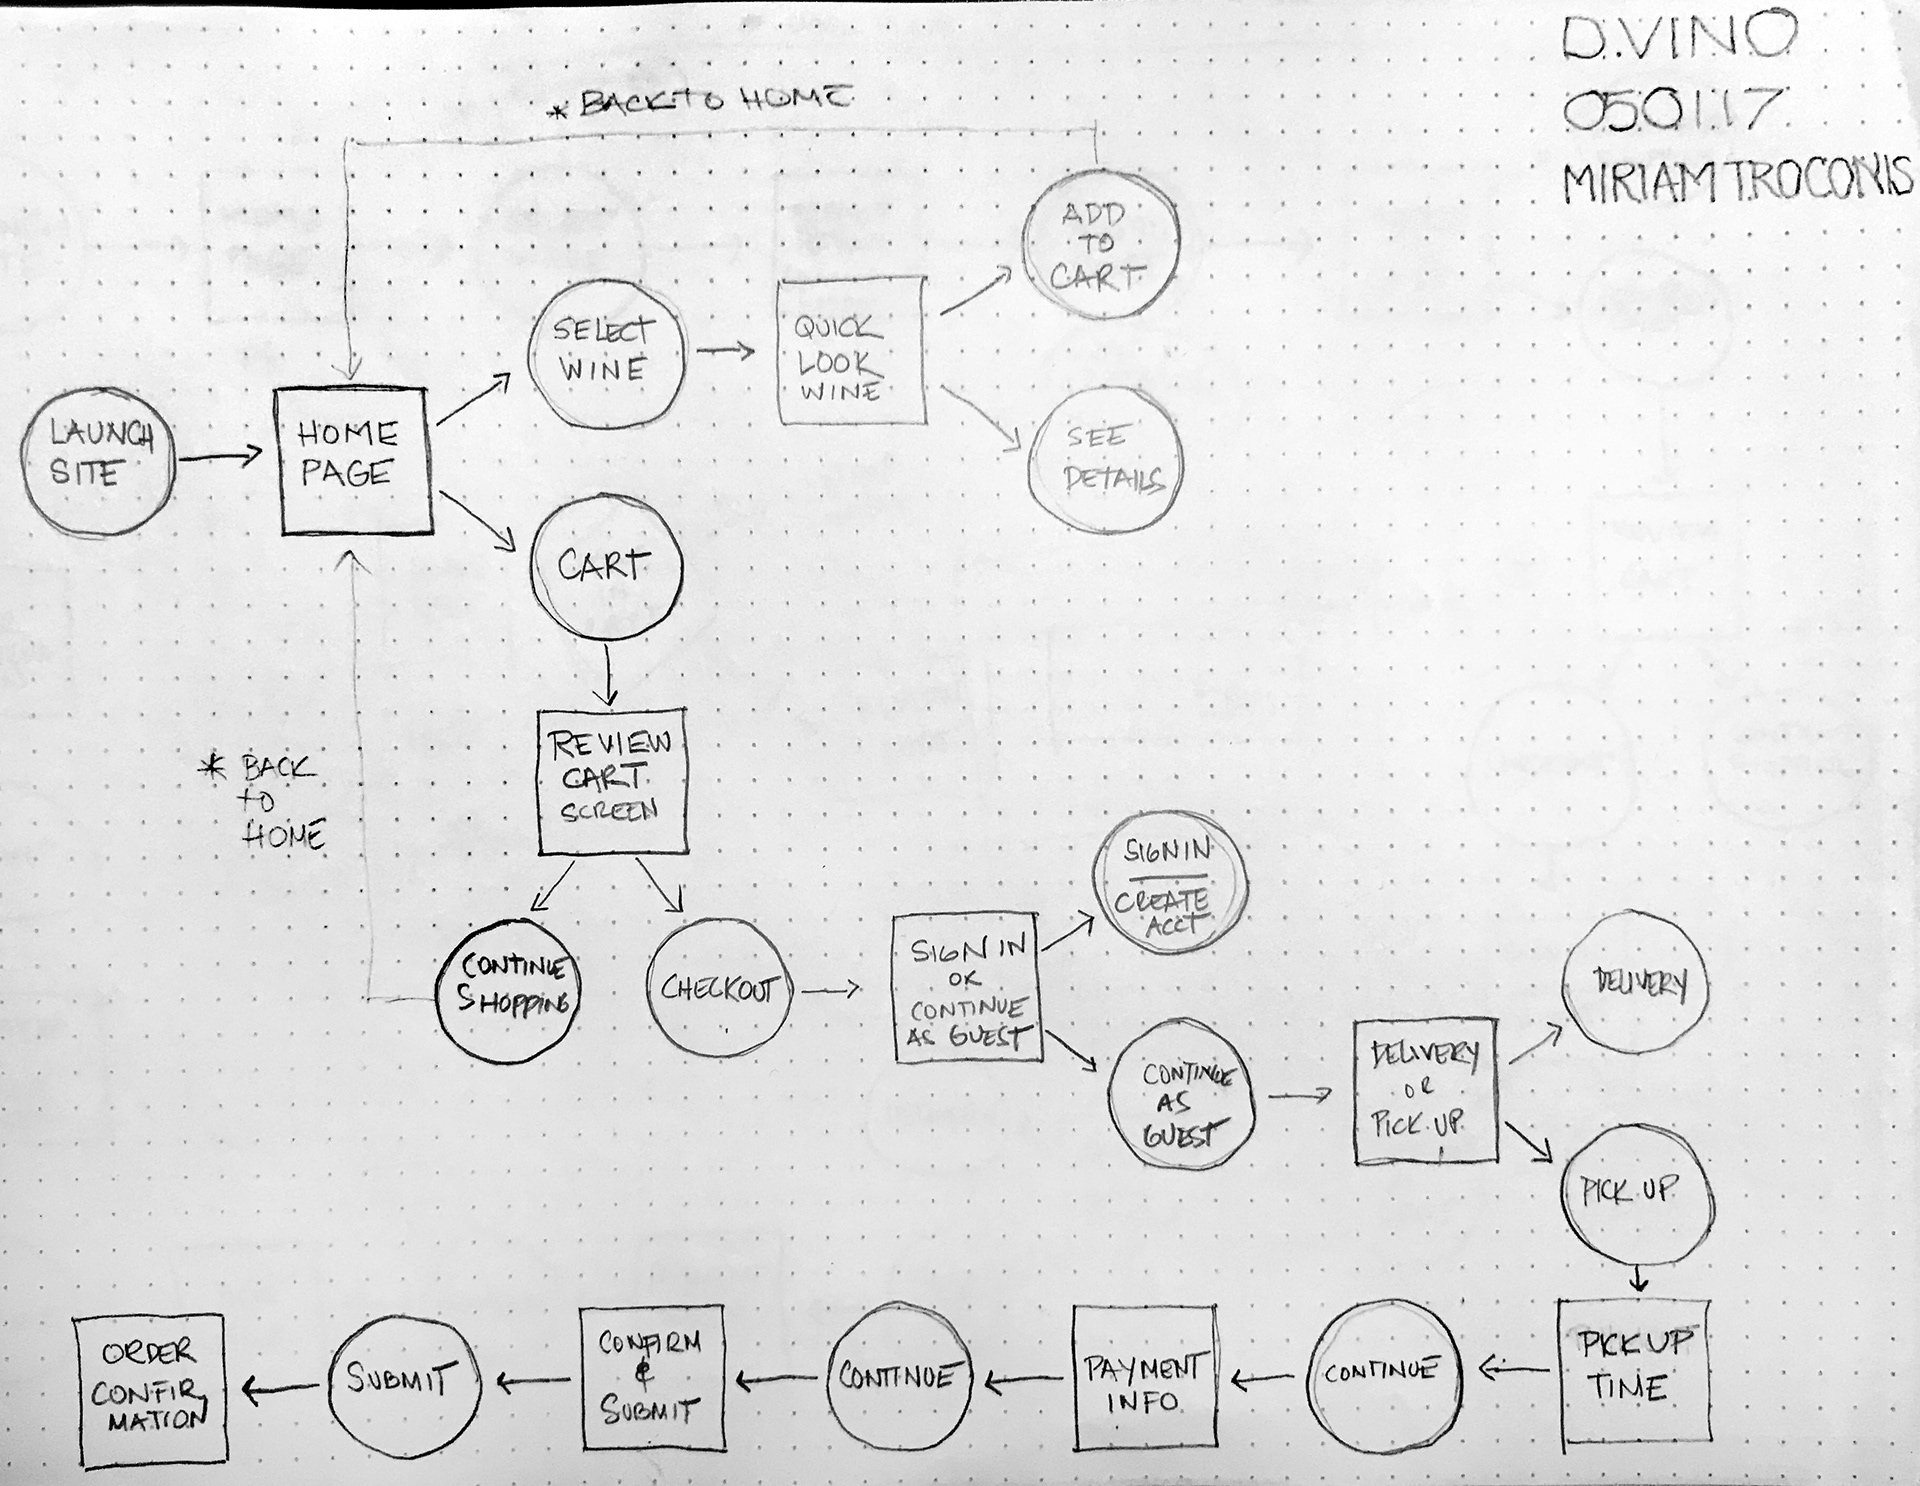 D.VINO
050117
MIRIAM TROCONIS
* BACK TO HOME
ADD
TO
CART
SELECT
WINE
QUICK
LOOK
WINE
LAUNCH
SITE
HOME
PAGE
SEE
DETAILS
CART
REVIEW
CART
SCREEN
* BACK
TO
HOME
CONTINUE
SHOPPING
CHECKOUT
SIGN IN
OR
CONTINUE
AS GUEST
SIGN IN
CREATE
ACCT
CONTINUE
AS
GUEST
DELIVERY
OR
PICK UP
DELIVERY
PICK UP
PICK UP
TIME
CONTINUE
PAYMENT
INFO
CONTINUE
CONFIRM
&
SUBMIT
SUBMIT
ORDER
CONFIR
MATION